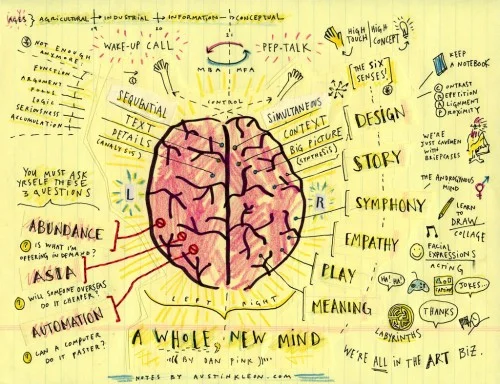 AGES} AGRICULTURAL → INDUSTRIAL → INFORMATION → CONCEPTUAL
WAKE-UP CALL
PEP-TALK
MBA
MFA
HIGH TOUCH
HIGH CONCEPT
NOT ENOUGH ANYMORE?
FUNCTION
ARGUMENT
FOCUS
LOGIC
SERIOUSNESS
ACCUMULATION
CONTROL
SEQUENTIAL
TEXT
DETAILS
(ANALYSIS)
SIMULTANEOUS
CONTEXT
BIG PICTURE
(SYNTHESIS)
L
R
THE SIX
SENSES!
DESIGN
STORY
SYMPHONY
EMPATHY
PLAY
MEANING
KEEP
A NOTEBOOK
CONTRAST
REPETITION
ALIGNMENT
PROXIMITY
WE'RE
JUST CAVEMEN
WITH
BRIEFCASES
THE ANDROGYNOUS
MIND
LEARN
TO
DRAW
COLLAGE
FACIAL
EXPRESSIONS
ACTING
HA! HA!
JOKES...
LABYRINTHS
THANKS
WE'RE ALL IN THE ART BIZ.
YOU MUST ASK
YRSELF THESE
3 QUESTIONS
ABUNDANCE
? IS WHAT I'M
OFFERING IN DEMAND?
ASIA
? WILL SOMEONE OVERSEAS
DO IT CHEAPER?
AUTOMATION
? CAN A COMPUTER
DO IT FASTER?
LEFT RIGHT
A WHOLE, NEW MIND
BY DAN PINK
NOTES BY AUSTINKLEON.COM